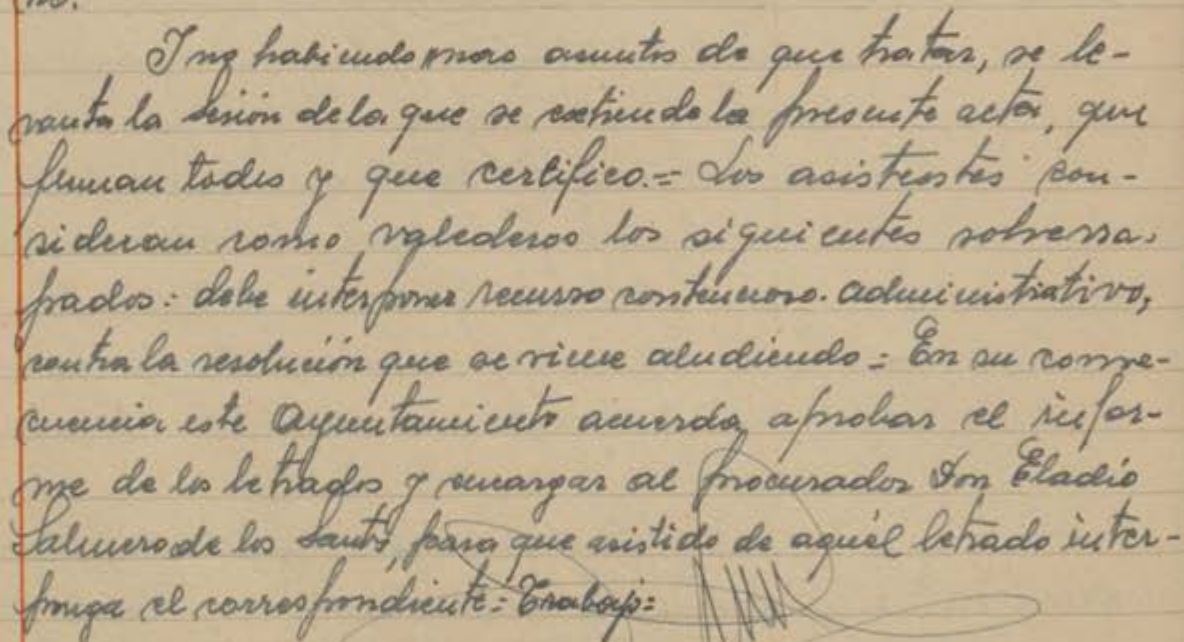 Y no habiendo mas asuntos de que tratar, se le-
vanta la sesión de la que se extiende la presente acta, que
firman todos y que certifico.= Los asistentes con-
sideran como valederos los siguientes sobrerra-
pados: debe interponer recurso contencioso-administrativo,
contra la resolución que se viene aludiendo = En su conse-
cuencia este Ayuntamiento acuerda aprobar el infor-
me de los letrados y encargar al procurador Don Eladio
Salmero de los Santos, para que asistido de aquél letrado inter-
ponga el correspondiente = Trabajo =